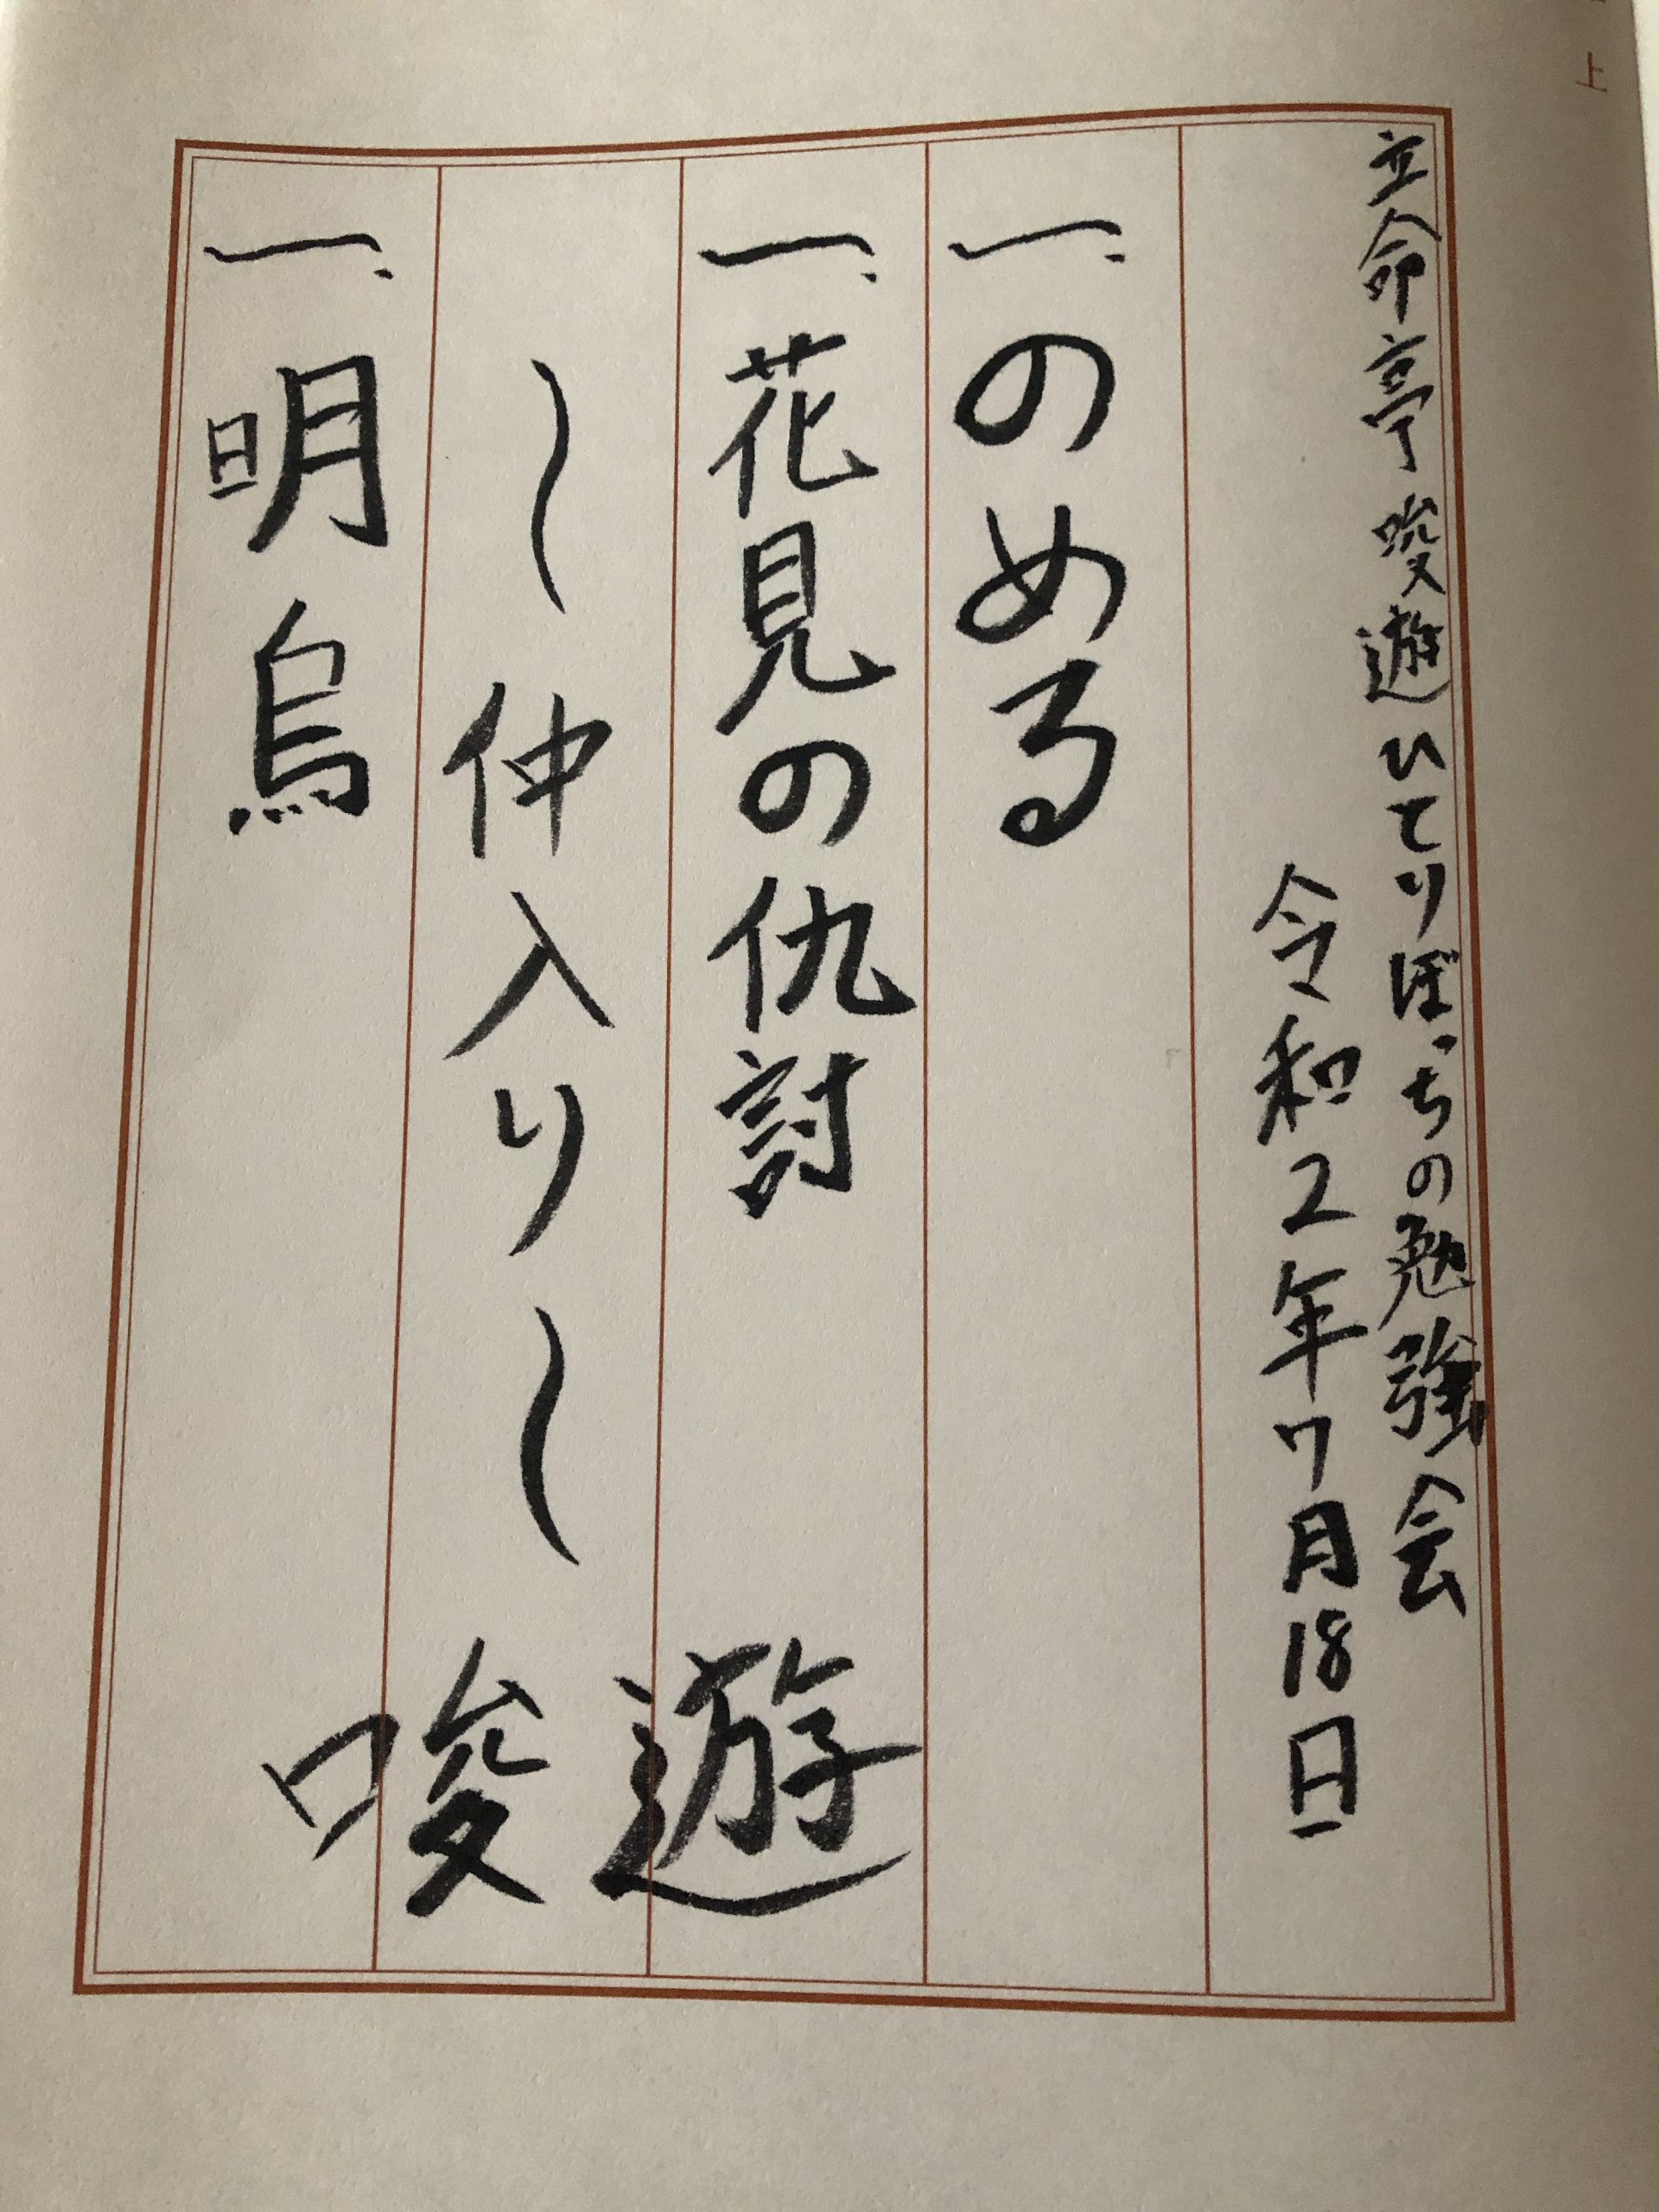 上
立命亭唆遊ひとりぼっちの勉強会
令和2年7月18日
一、のめる
一、花見の仇討
〜仲入り〜
一、明烏
唆遊